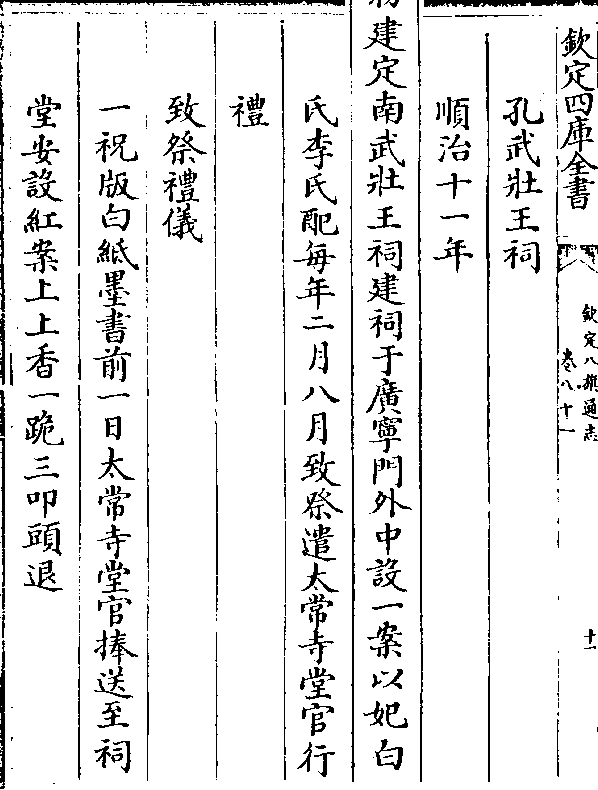 欽定四庫全書
欽定八旗通志
卷八十一
十一
孔武壯王祠
順治十一年
建定南武壯王祠建祠于廣寧門外中設一案以妃白
氏李氏配每年二月八月致祭遣太常寺堂官行
禮
致祭禮儀
一祝版白紙墨書前一日太常寺堂官捧送至祠
堂安設紅案上上香一跪三叩頭退